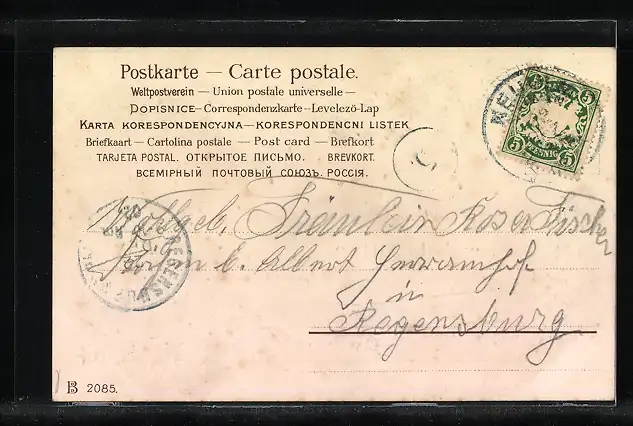 Postkarte — Carte postale.
Weltpostverein — Union postale universelle —
DOPISNICE — Correspondenzkarte — Levelező-Lap
KARTA KORESPONDENCYJNA — KORESPONDENCNI LISTEK
Briefkaart — Cartolina postale — Post card — Brefkort
TARJETA POSTAL. ОТКРЫТОЕ ПИСЬМО. BREVKORT.
ВСЕМІРНЫЙ ПОЧТОВЫЙ СОЮЗЪ. РОССІЯ.
5 5
PFENNIG
5 5
REGENSBURG
Fräulein Rosa Fischer
b. Albert
in
Regensburg
B 2085.